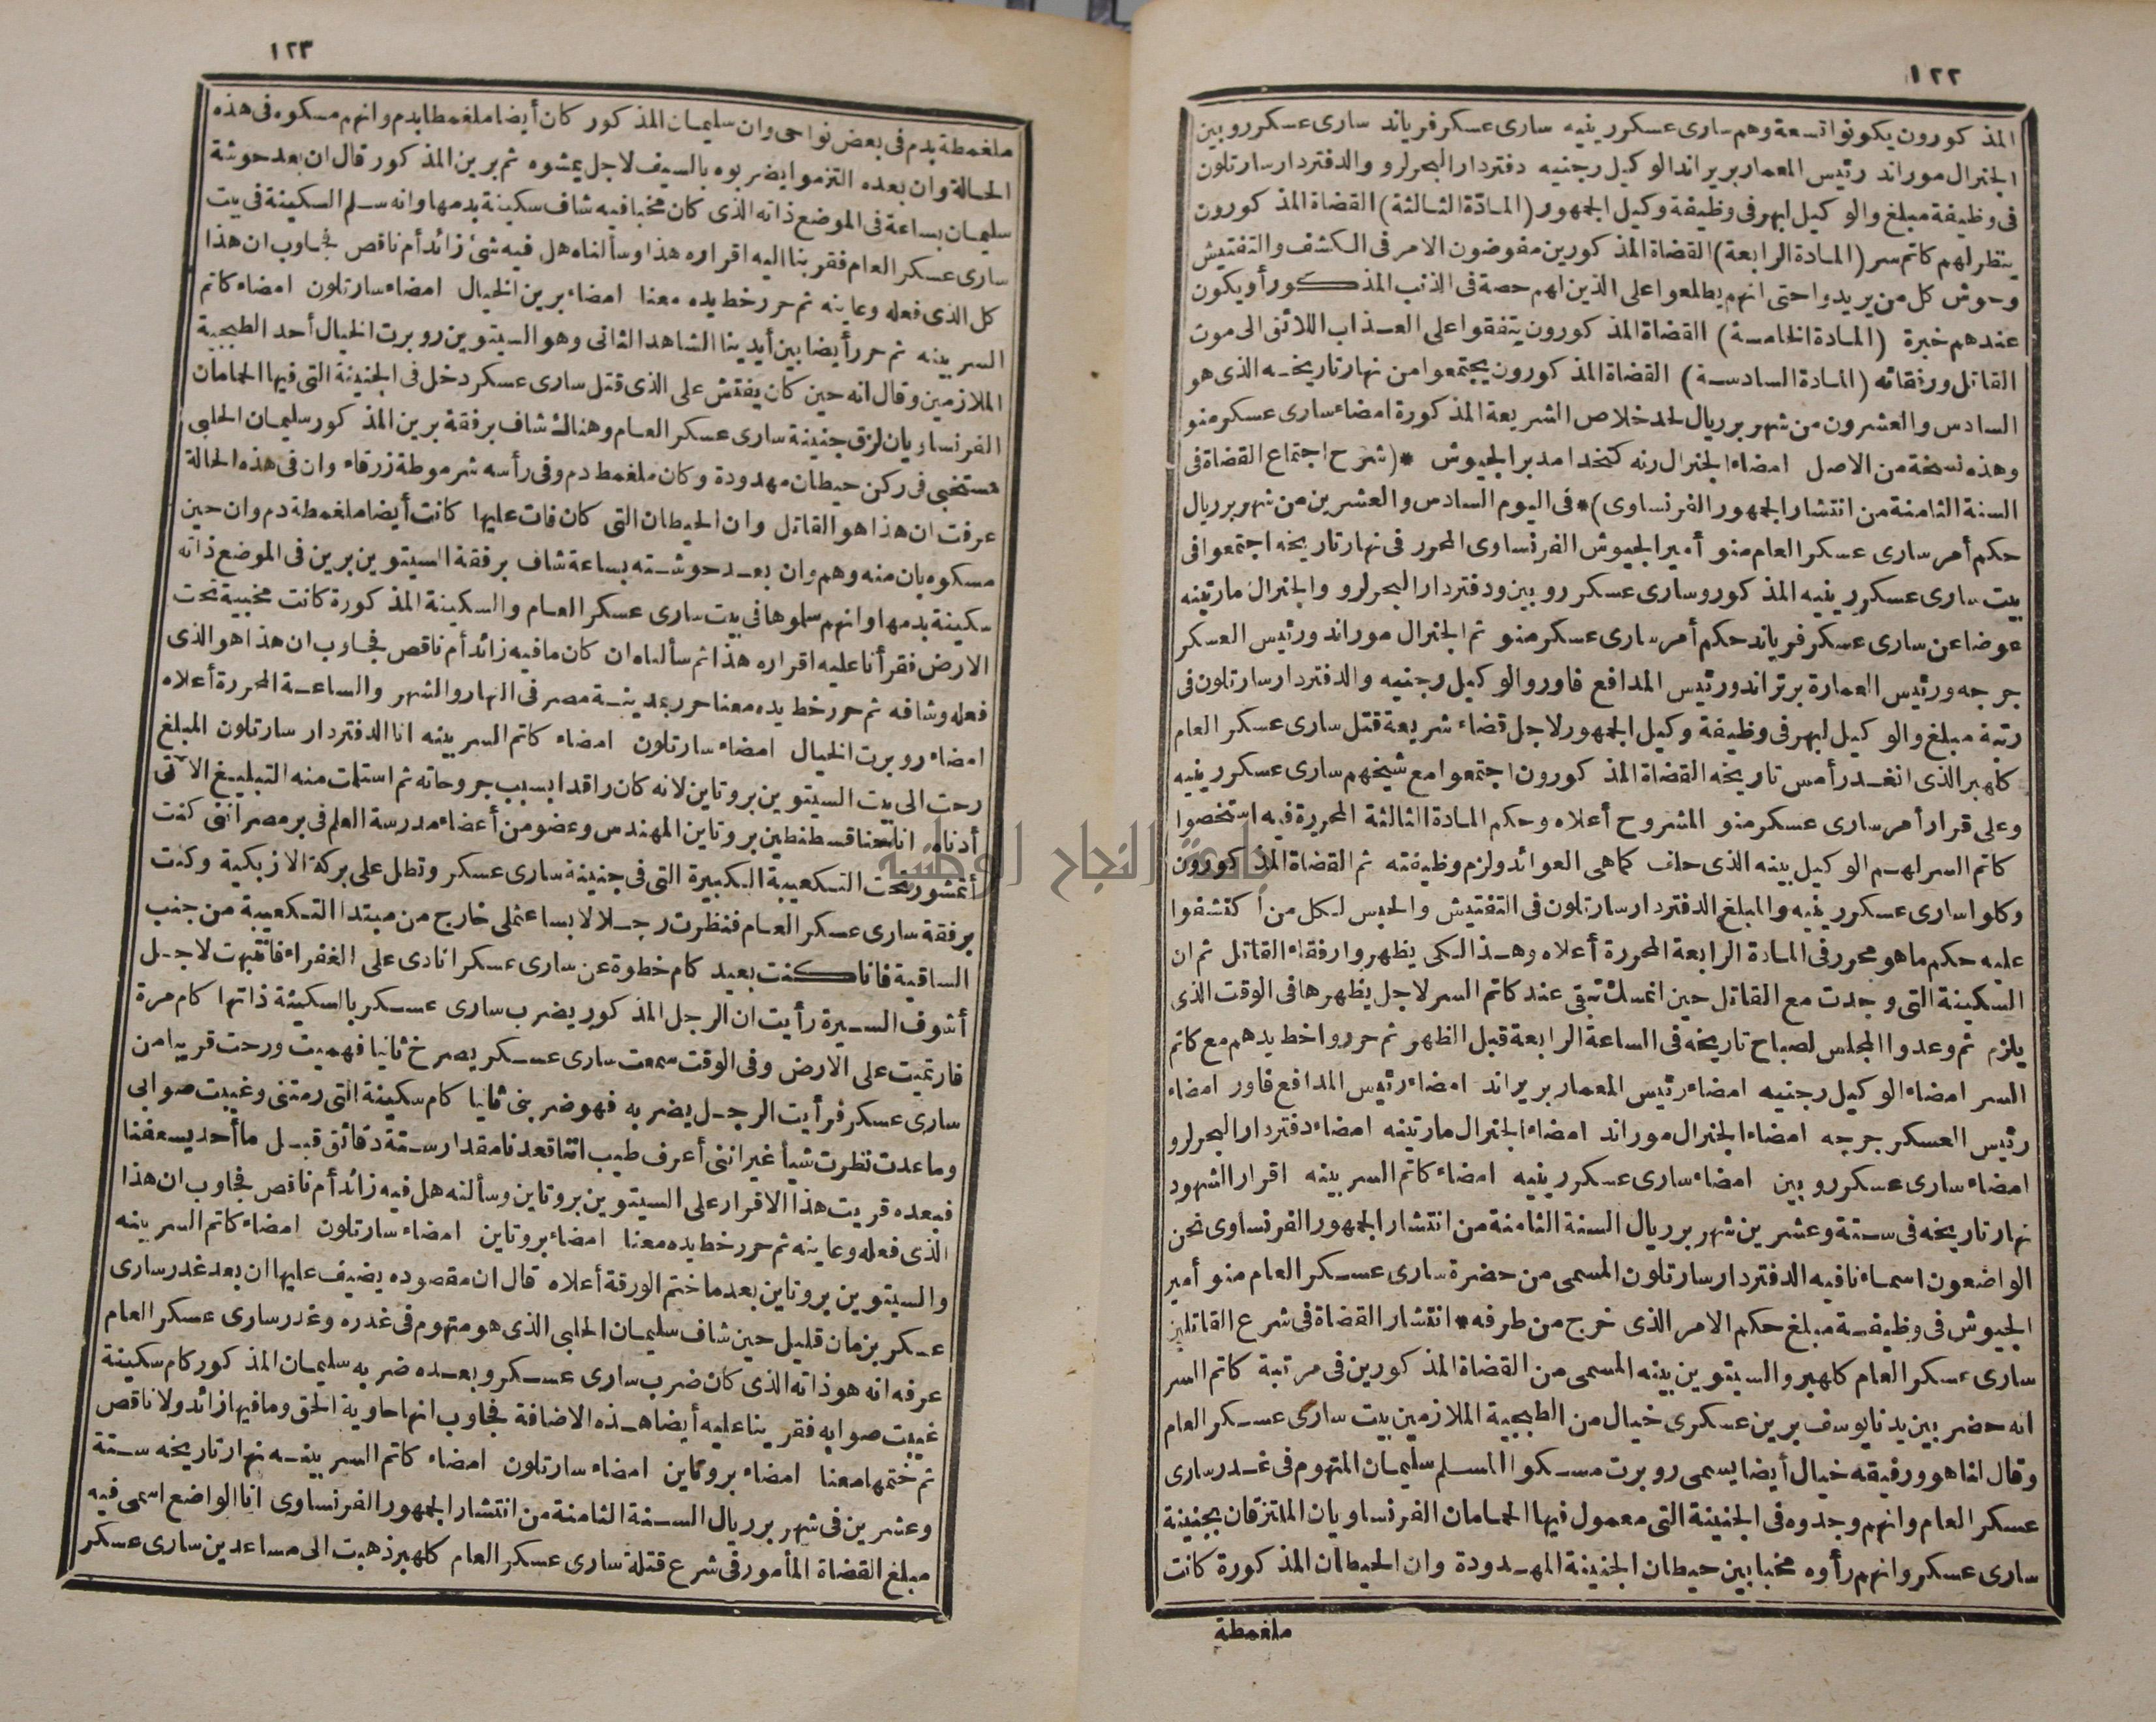 ١٢٢
المذكورون يكونوا تسعة وهم سارى عسكر رينيه سارى عسكر فرياند سارى عسكر روبين
الجنرال موراند رئيس المعمار بريراند الوكيل رجنيه دفتردار البحر لرو والدفتردار سارتلون
فى وظيفة مبلغ والوكيل لبهر فى وظيفة وكيل الجمهور (المادّة الثالثة) القضاة المذكورون
ينظر لهم كاتم سر (المادة الرابعة) القضاة المذكورين مفوضون الامر فى الكشف والتفتيش
وحوش كل من يريدوا حتى انهم يطلعوا على الذين لهم حصة فى الذنب المذكور أو يكون
عندهم خبرة (المادة الخامسة) القضاة المذكورون يتفقوا على العذاب اللائق الى موت
القاتل ورفقائه (المادة السادسة) القضاة المذكورون يجتمعوا من نهار تاريخه الذى هو
السادس والعشرون من شهر برريال لحد خلاص الشريعة المذكورة امضاء سارى عسكر منو
وهذه نسخة من الاصل امضاء الجنرال رنه كتخدا مدبر الجيوش *(شرح اجتماع القضاة فى
السنة الثامنة من انتشار الجمهور الفرنساوى)* فى اليوم السادس والعشرين من شهر برريال
حكم أمر سارى عسكر العام منو أمير الجيوش الفرنساوى المحرر فى نهار تاريخه اجتمعوا فى
بيت سارى عسكر رينيه المذكور وسارى عسكر روبين ودفتردار البحر لرو والجنرال مارتينه
عوضا عن سارى عسكر فرياند حكم أمر سارى عسكر منو ثم الجنرال موراند ورئيس العسكر
جرجه ورئيس العمارة برتراند ورئيس المدافع فاور والوكيل رجنيه والدفتردار سارتلون فى
رتبة مبلغ والوكيل لبهر فى وظيفة وكيل الجمهور لاجل قضاء شريعة قتل سارى عسكر العام
كلهبر الذى انغدر أمس تاريخه القضاة المذكورون اجتمعوا مع شيخهم سارى عسكر رينيه
وعلى قرار أمر سارى عسكر منو المشروح أعلاه وحكم المادة الثالثة المحررة فيه استخصوا
كاتم السر لهم الوكيل بينه الذى حلف كما هى العوائد ولزم وظيفته ثم القضاة المذكورون
وكلوا سارى عسكر رينيه والمبلغ الدفتردار سارتلون فى التفتيش والحبس لكل من اكتشفوا
عليه حكم ما هو محرر فى المادة الرابعة المحررة أعلاه وهذا لكى يظهروا رفقاء القاتل ثم ان
السكينة التى وجدت مع القاتل حين انمسك تبقى عند كاتم السر لاجل يظهرها فى الوقت الذى
يلزم ثم وعدوا المجلس لصباح تاريخه فى الساعة الرابعة قبل الظهر ثم حرروا خط يدهم مع كاتم
السر امضاء الوكيل رجنيه امضاء رئيس المعمار بريراند امضاء رئيس المدافع فاور امضاء
رئيس العسكر جرجه امضاء الجنرال موراند امضاء الجنرال مارتينه امضاء دفتردار البحر لرو
امضاء سارى عسكر روبين امضاء سارى عسكر رينيه امضاء كاتم السر بينه اقرار الشهود
نهار تاريخه فى ستة وعشرين شهر برريال السنة الثامنة من انتشار الجمهور الفرنساوى نحن
الواضعون اسماءنا فيه الدفتردار سارتلون المسمى من حضرة سارى عسكر العام منو أمير
الجيوش فى وظيفة مبلغ حكم الامر الذى خرج من طرفه * انتشار القضاة فى شرع القاتلين
سارى عسكر العام كلهبر والسيتوين بينه المسمى من القضاة المذكورين فى مرتبة كاتم السر
انه حضر بين يدنا يوسف برين عسكرى خيال من الطبجية الملازمين بيت سارى عسكر العام
وقال انا هو ورفيقه خيال أيضا يسمى روبرت مسكوا المسلم سليمان المتهوم فى غدر سارى
عسكر العام وانهم وجدوه فى الجنينة التى معمول فيها الحمامان الفرنساويان الملتزقان بجنينة
سارى عسكر وانهم رأوه مخبا بين حيطان الجنينة المهدودة وان الحيطان المذكورة كانت
ملغمطة
١٢٣
ملغمطة بدم فى بعض نواحى وان سليمان المذكور كان أيضا ملغمطا بدم وانهم مسكوه فى هذه
الحالة وان بعده التزموا يضربوه بالسيف لاجل يمشوه ثم برين المذكور قال ان بعد حوشة
سليمان بساعة فى الموضع ذاته الذى كان مخبا فيه شاف سكينة بدمها وانه سلم السكينة فى بيت
سارى عسكر العام فقرينا اليه اقراره هذا وسألناه هل فيه شئ زائد أم ناقص فجاوب ان هذا
كل الذى فعله وعاينه ثم حرر خط يده معنا امضاء برين الخيال امضاء سارتلون امضاء كاتم
السر بينه ثم حرر أيضا بين أيدينا الشاهد الثانى وهو السيتوين روبرت الخيال أحد الطبجية
الملازمين وقال انه حين كان يفتش على الذى قتل سارى عسكر دخل فى الجنينة التى فيها الحمامان
الفرنساويان لزق جنينة سارى عسكر العام وهناك شاف برفقة برين المذكور سليمان الحلبى
مستخبى فى ركن حيطان مهدودة وكان ملغمط دم وفى رأسه شرموطة زرقاء وان فى هذه الحالة
عرفت ان هذا هو القاتل وان الحيطان التى كان فات عليها كانت أيضا ملغمطة دم وان حين
مسكوه بان منه وهم وان بعد حوشته بساعة شاف برفقة السيتوين برين فى الموضع ذاته
سكينة بدمها وانهم سلموها فى بيت سارى عسكر العام والسكينة المذكورة كانت مخبية تحت
الارض فقرأنا عليه اقراره هذا ثم سألناه ان كان ما فيه زائد أم ناقص فجاوب ان هذا هو الذى
فعله وشافه ثم حرر خط يده معنا حرر بمدينة مصر فى النهار والشهر والساعة المحررة أعلاه
امضاء روبرت الخيال امضاء سارتلون امضاء كاتم السر بينه انا الدفتردار سارتلون المبلغ
رحت الى بيت السيتوين بروتاين لانه كان راقدا بسبب جروحاته ثم استلمت منه التبليغ الآتى
أدناه انا حنا قسطنطين بروتاين المهندس وعضو من أعضاء مدرسة العلم فى بر مصر اننى كنت
أتمشور تحت التكعيبة الكبيرة التى فى جنينة سارى عسكر وتطل على بركة الازبكية وكنت
برفقة سارى عسكر العام فنظرت رجلا لابسا عثملى خارج من مبتدا التكعيبة من جنب
الساقية فانا كنت بعيد كام خطوة عن سارى عسكر انادى على الغفراء فاتقبهت لاجل
أشوف السيرة رأيت ان الرجل المذكور يضرب سارى عسكر بالسكينة ذاتها كام مرة
فارتميت على الارض وفى الوقت سمعت سارى عسكر يصرخ ثانيا فهميت ورحت قريبا من
سارى عسكر فرأيت الرجل يضربه فهو ضربنى ثانيا كام سكينة التى رمتنى وغيبت صوابى
وما عدت نظرت شيأ غير اننى أعرف طيب اننا قعدنا مقدار ستة دقائق قبل ما أحد يسعفنا
فبعده قريت هذا الاقرار على السيتوين بروتاين وسألته هل فيه زائد أم ناقص فجاوب ان هذا
الذى فعله وعاينه ثم حرر خط يده معنا امضاء بروتاين امضاء سارتلون امضاء كاتم السر بينه
والسيتوين بروتاين بعدما ختم الورقة أعلاه قال ان مقصوده يضيف عليها ان بعد غدر سارى
عسكر بزمان قليل حين شاف سليمان الحلبى الذى هو متهوم فى غدره وغدر سارى عسكر العام
عرفه انه هو ذاته الذى كان ضرب سارى عسكر وبعده ضربه سليمان المذكور كام سكينة
غيبت صوابه فقرينا عليه أيضا هذه الاضافة فجاوب انها حاوية الحق وما فيها زائد ولا ناقص
ثم ختمها معنا امضاء بروتاين امضاء سارتلون امضاء كاتم السر بينه نهار تاريخه ستة
وعشرين فى شهر برريال السنة الثامنة من انتشار الجمهور الفرنساوى انا الواضع اسمى فيه
مبلغ القضاة المأمور فى شرع قتلة سارى عسكر العام كلهبر ذهبت الى مساعدين سارى عسكر
جامعة النجاح الوطنية